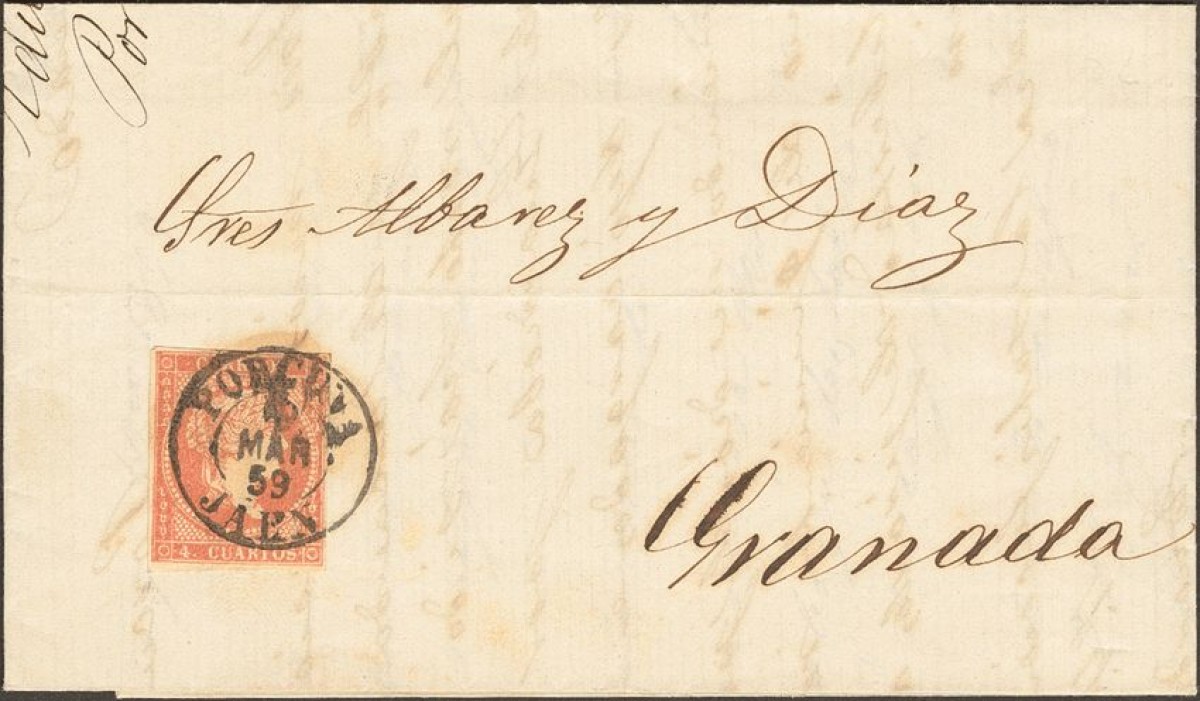 Por
Sres Albarez y Diaz
PORCUNA
MAR
59
JAEN
4. CUARTOS
Granada